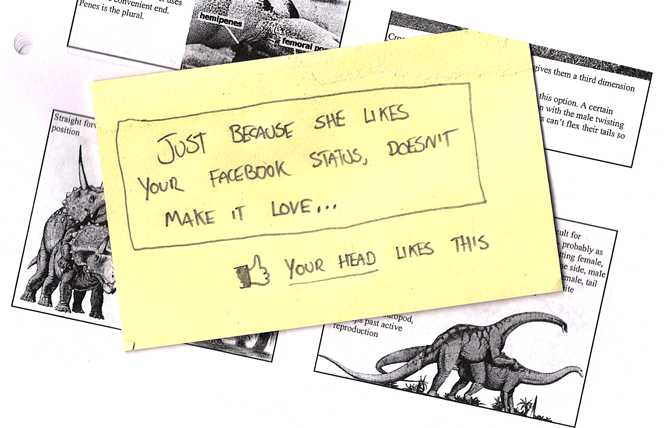 uses
convenient end.
Penes is the plural.
hemipenes
femoral
gives them a third dimension
this option. A certain
with the male twisting
can't flex their tails so
Straight
position
JUST BECAUSE SHE LIKES
YOUR FACEBOOK STATUS, DOESN'T
MAKE IT LOVE...
YOUR HEAD LIKES THIS
for
probably as
female,
side, male
tail
past active
reproduction